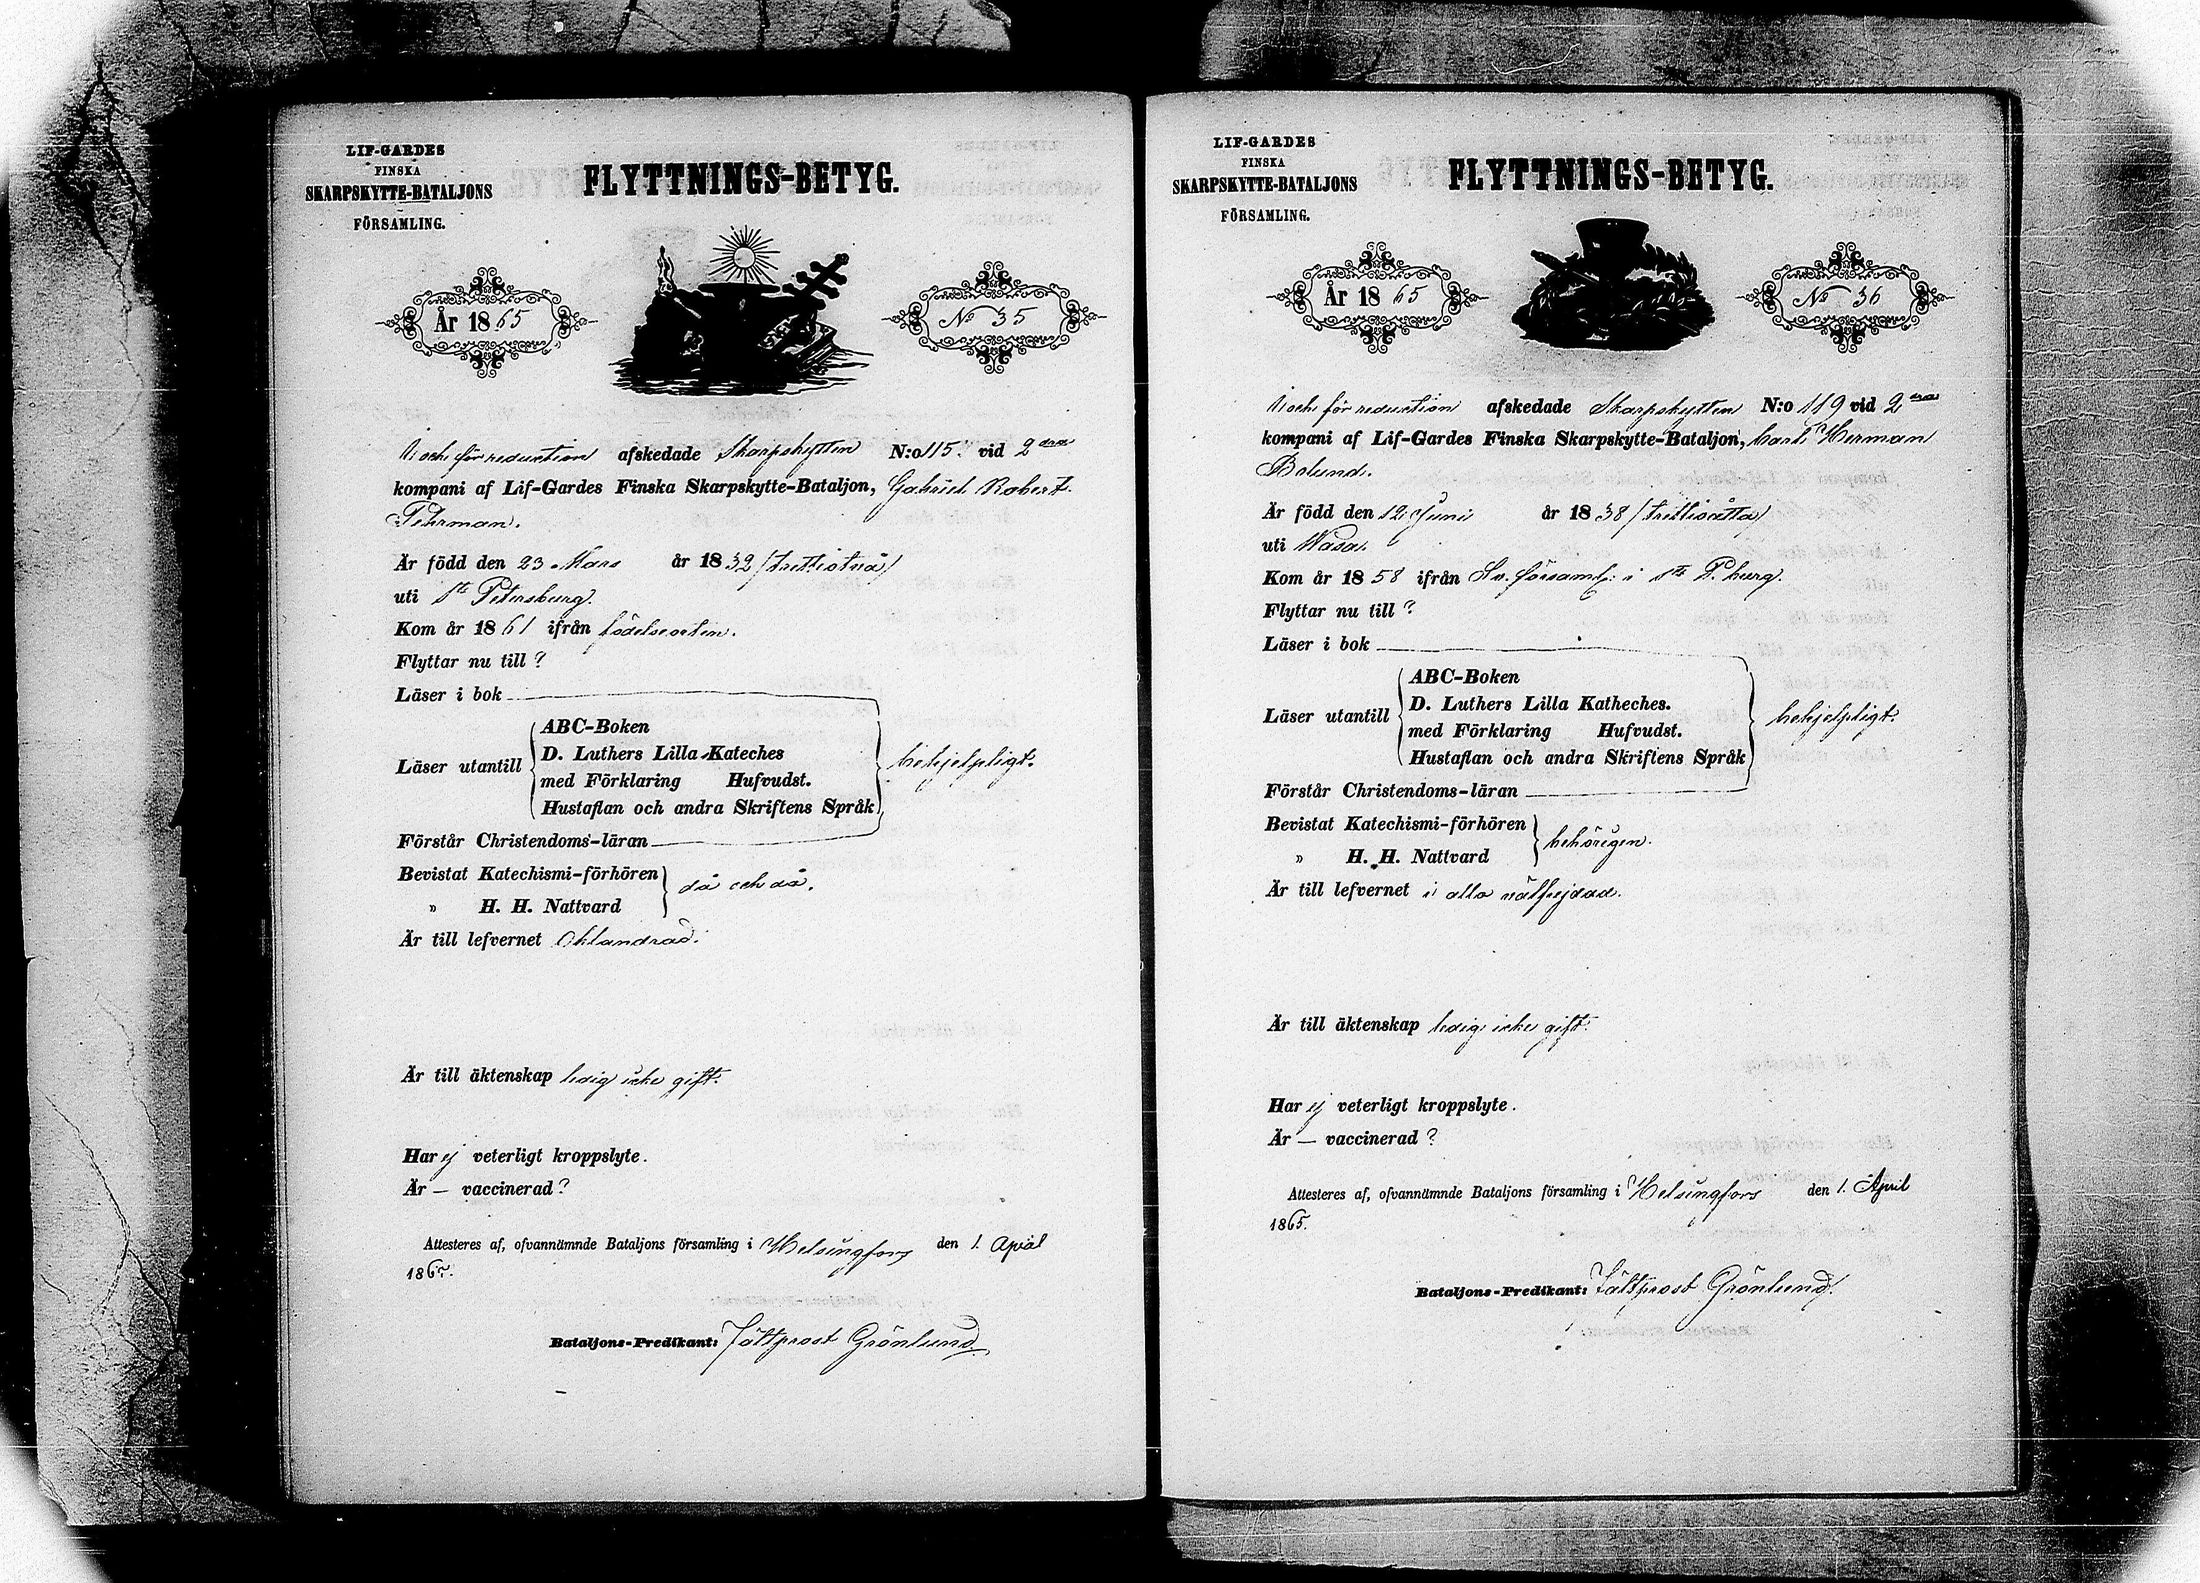 LIF-GARDES
FINSKA
SKARPSKYTTE-BATALJONS
FÖRSAMLING.
FLYTTNINGS-BETYG.
År 1865
No 35
för reduction afskedade Skarpskytten N:o 115. vid 2dra
kompani af Lif-Gardes Finska Skarpskytte-Bataljon, Gabriel Robert
Pehrman.
Är född den 23 Mars år 1832 /trettiotvå/
uti St Petersburg.
Kom år 1861 ifrån födelseorten.
Flyttar nu till ?
Läser i bok
Läser utantill
ABC-Boken
D. Luthers Lilla Kateches
med Förklaring Hufvudst.
Hustaflan och andra Skriftens Språk
behjelpligt.
Förstår Christendoms-läran
Bevistat Katechismi-förhören
" H. H. Nattvard
då och då.
Är till lefvernet Oklandrad.
Är till äktenskap ledig icke gift.
Har ej veterligt kroppslyte.
Är — vaccinerad ?
Attesteres af, ofvannämnde Bataljons församling i Helsingfors den 1. April
1865.
Bataljons-Predikant: Fältprost Grönlund.
LIF-GARDES
FINSKA
SKARPSKYTTE-BATALJONS
FÖRSAMLING.
FLYTTNINGS-BETYG.
År 1865
No 36
för reduction afskedade Skarpskytten N:o 119 vid 2dra
kompani af Lif-Gardes Finska Skarpskytte-Bataljon, Carl Herman
Bolund.
Är född den 12 Juni år 1838 /trettioåtta/
uti Wasa.
Kom år 1858 ifrån Sv. församl: i St P.burg.
Flyttar nu till ?
Läser i bok
Läser utantill
ABC-Boken
D. Luthers Lilla Katheches.
med Förklaring Hufvudst.
Hustaflan och andra Skriftens Språk
behjelpligt.
Förstår Christendoms-läran
Bevistat Katechismi-förhören
" H. H. Nattvard
behörigen.
Är till lefvernet i allo välfrejdad.
Är till äktenskap ledig icke gift.
Har ej veterligt kroppslyte.
Är — vaccinerad ?
Attesteres af, ofvannämnde Bataljons församling i Helsingfors den 1. April
1865.
Bataljons-Predikant: Fältprost Grönlund.